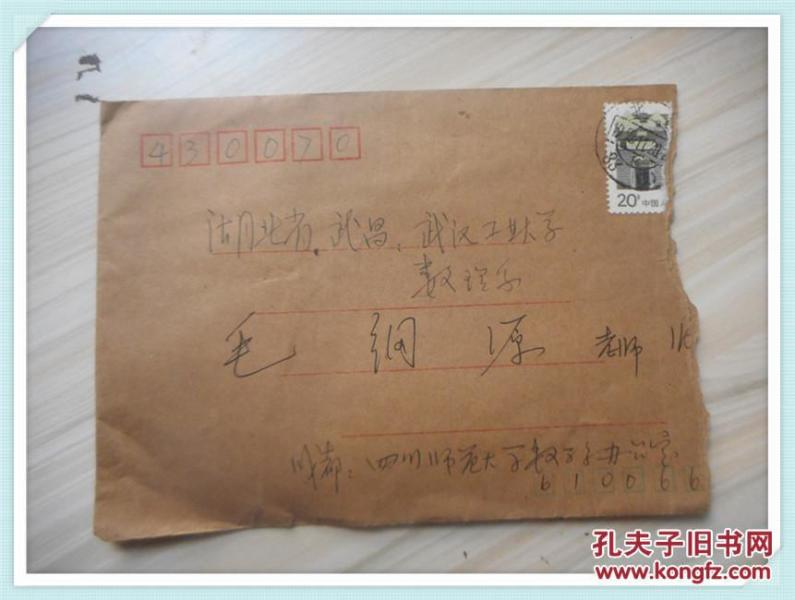 430070
湖北省、武昌、武汉工业大学
数理系
毛 纲 源 老师 收
成都：四川师范大学数学系办公室
610066
20分 中国人
孔夫子旧书网
www.kongfz.com